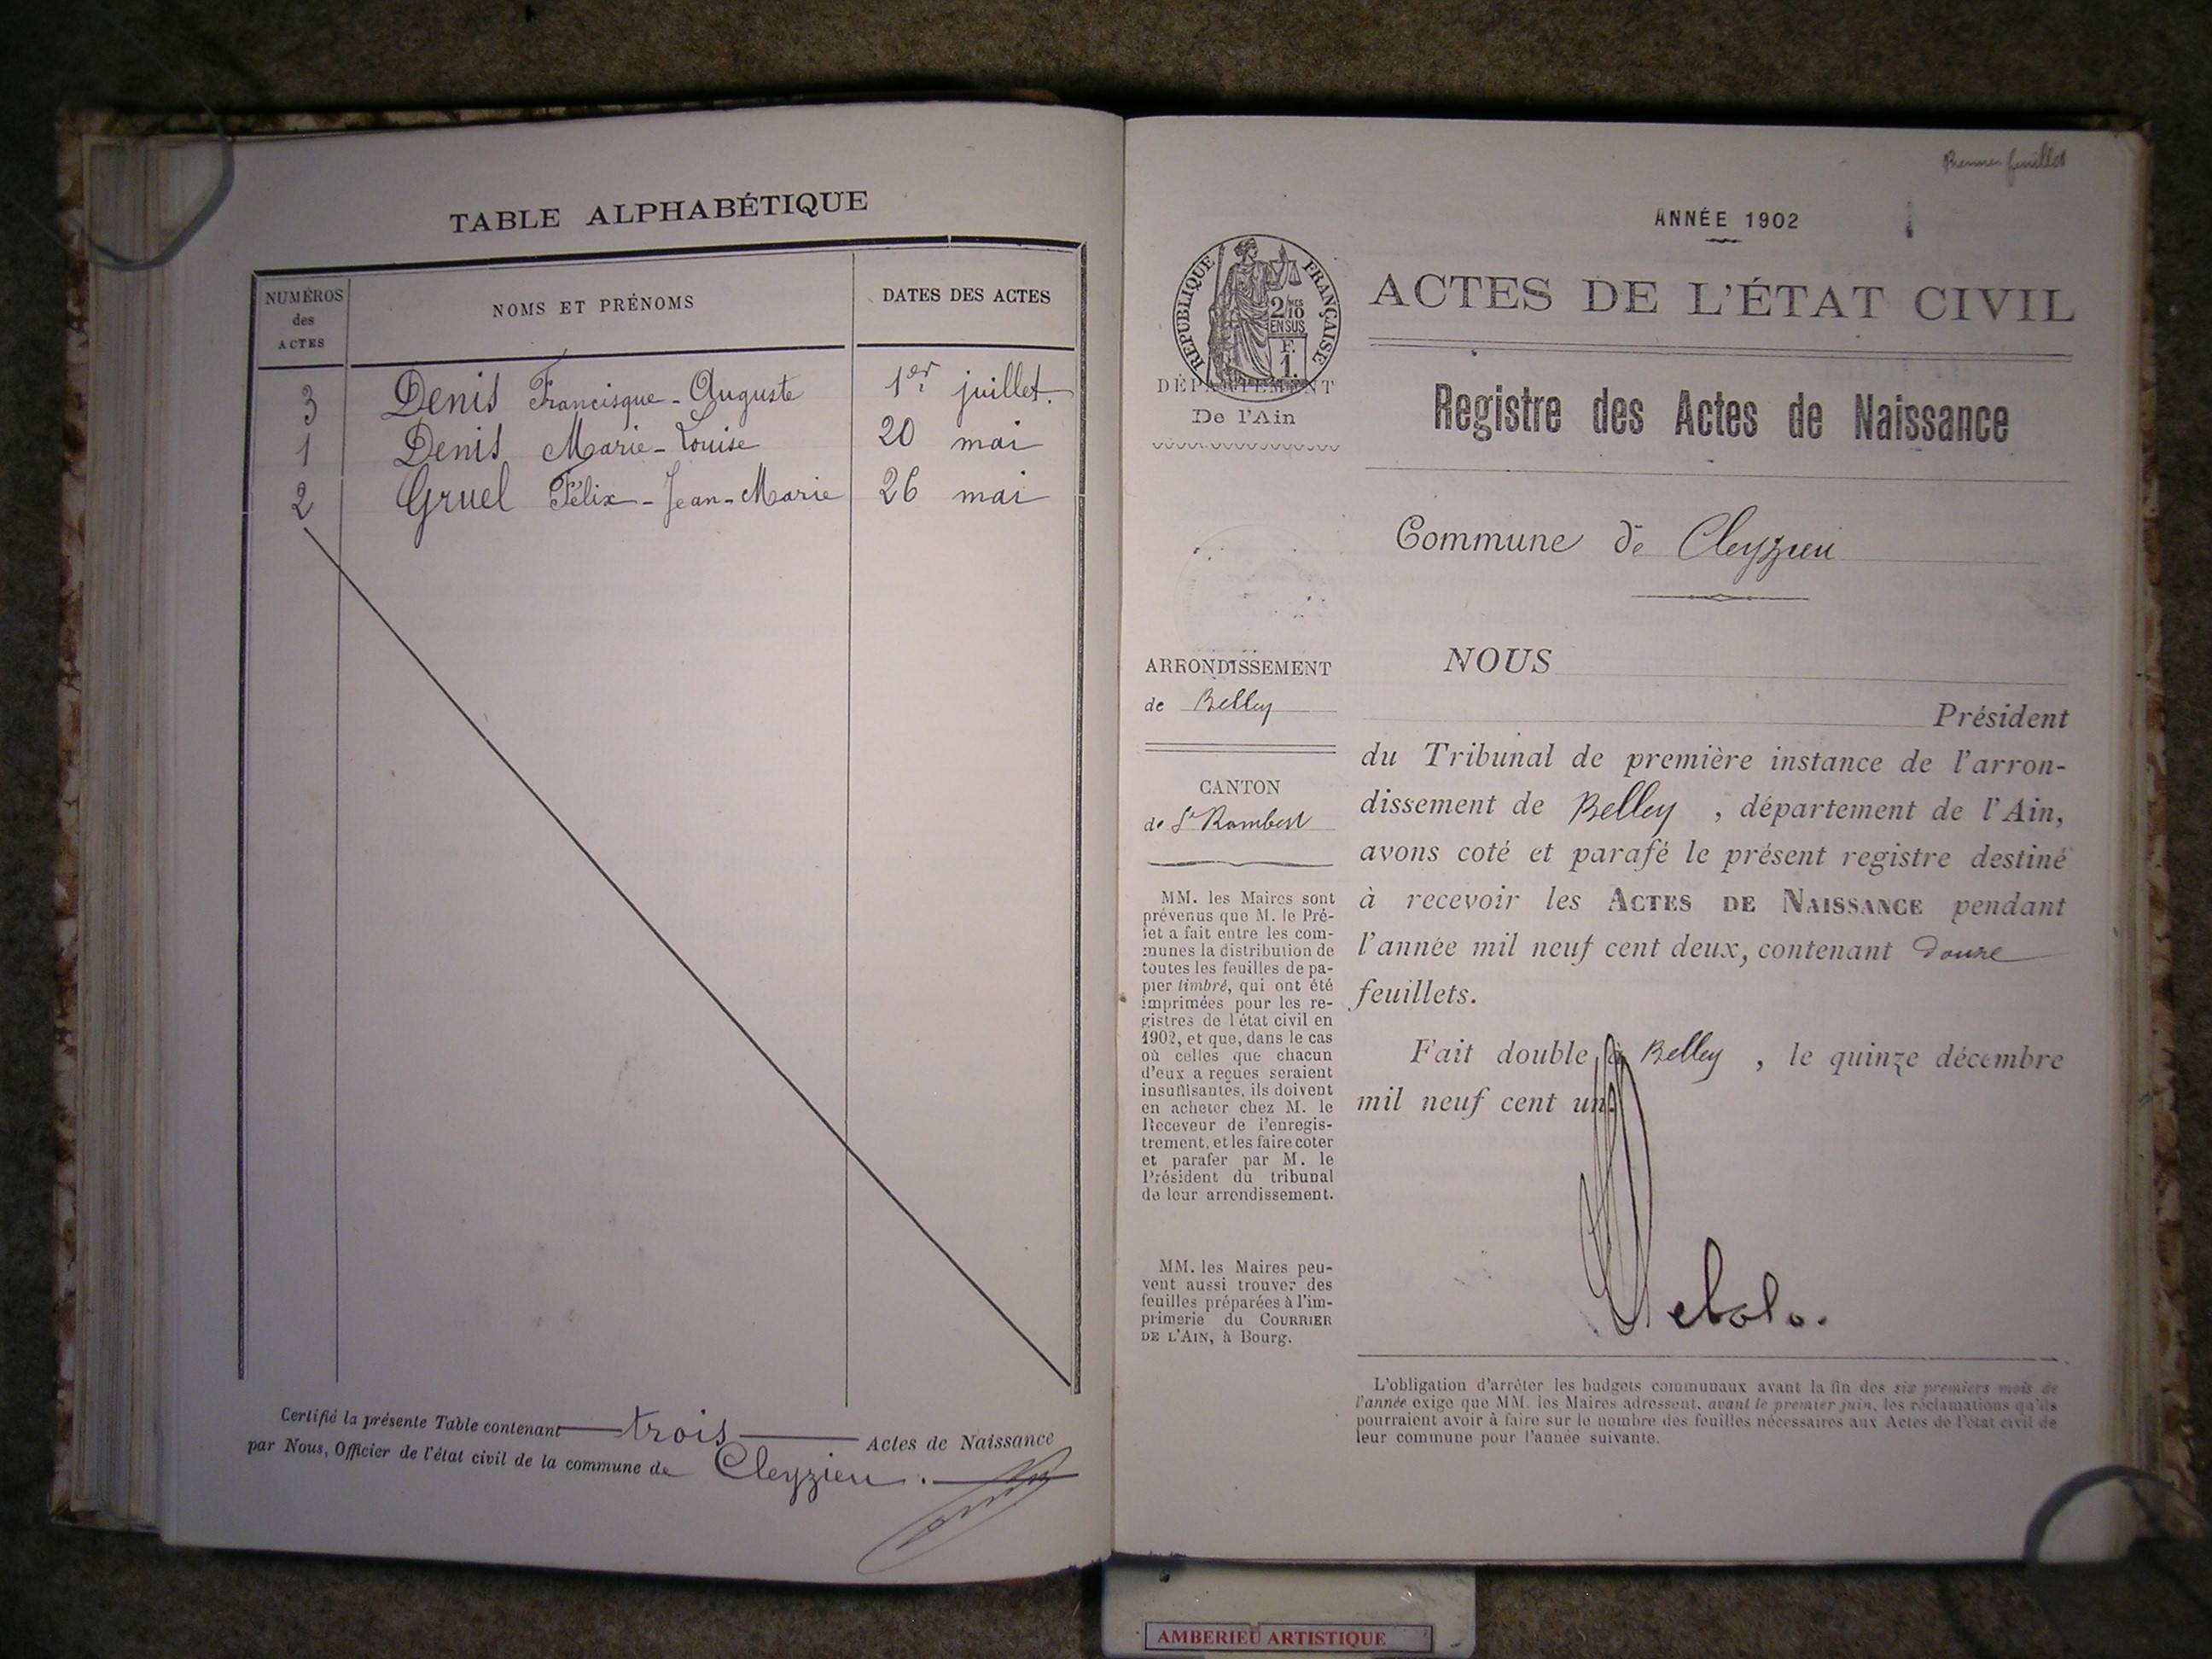 TABLE ALPHABÉTIQUE
NUMÉROS
des
ACTES
NOMS ET PRÉNOMS
DATES DES ACTES
3 Denis Francisque-Auguste 1er juillet.
1 Denis Marie-Louise 20 mai
2 Gruel Félix-Jean-Marie 26 mai
Certifié la présente Table contenant trois Actes de Naissance
par Nous, Officier de l'état civil de la commune de Cleyzieu.
Premier feuillet
ANNÉE 1902
RÉPUBLIQUE FRANÇAISE
2/10 mes
EN SUS
F.
1.
ACTES DE L'ÉTAT CIVIL
DÉPARTEMENT
De l'Ain
Registre des Actes de Naissance
Commune de Cleyzieu
ARRONDISSEMENT
de Belley
CANTON
de St Rambert
MM. les Maires sont
prévenus que M. le Pré-
fet a fait entre les com-
munes la distribution de
toutes les feuilles de pa-
pier timbré, qui ont été
imprimées pour les re-
gistres de l'état civil en
1902, et que, dans le cas
où celles que chacun
d'eux a reçues seraient
insuffisantes, ils doivent
en acheter chez M. le
Receveur de l'enregis-
trement, et les faire coter
et parafer par M. le
Président du tribunal
de leur arrondissement.
MM. les Maires peu-
vent aussi trouver des
feuilles préparées à l'im-
primerie du COURRIER
DE L'AIN, à Bourg.
NOUS
Président
du Tribunal de première instance de l'arron-
dissement de Belley , département de l'Ain,
avons coté et parafé le présent registre destiné
à recevoir les ACTES DE NAISSANCE pendant
l'année mil neuf cent deux, contenant douze
feuillets.
Fait double à Belley , le quinze décembre
mil neuf cent un.
L'obligation d'arrêter les budgets communaux avant la fin des six premiers mois de
l'année exige que MM. les Maires adressent, avant le premier juin, les réclamations qu'ils
pourraient avoir à faire sur le nombre des feuilles nécessaires aux Actes de l'état civil de
leur commune pour l'année suivante.
AMBERIEU ARTISTIQUE